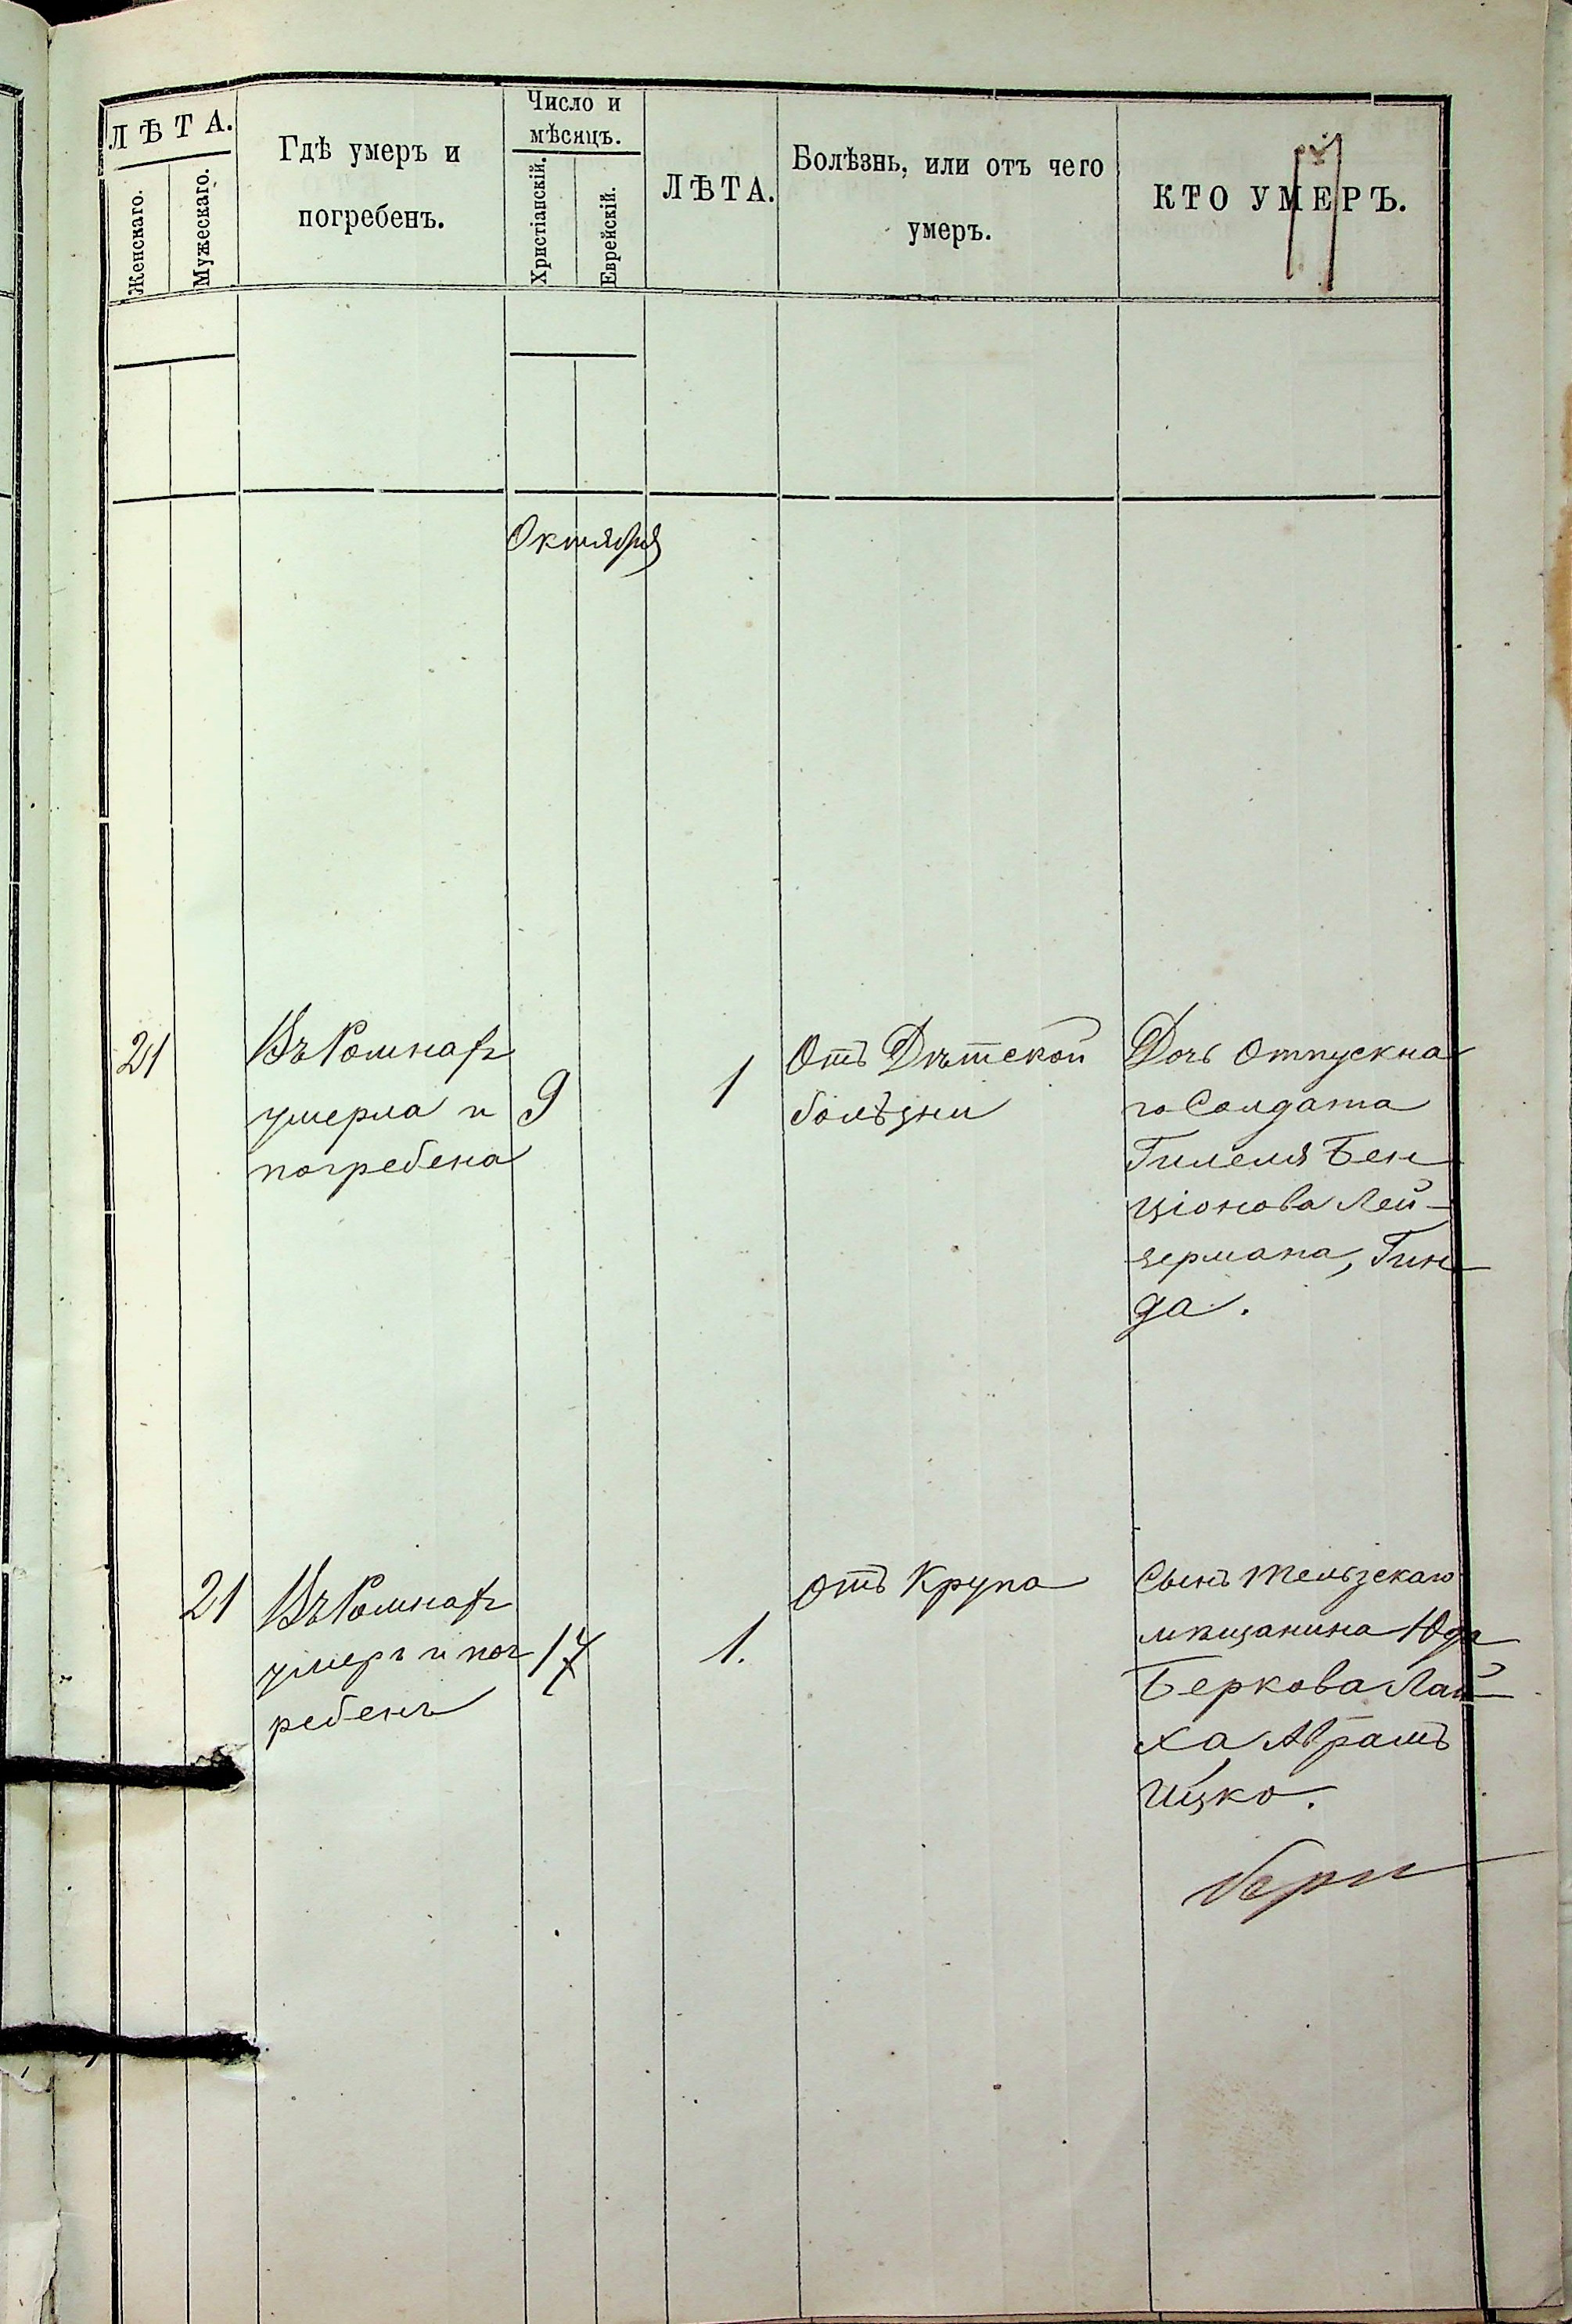 ЛѢТА.
Женскаго.
Мужескаго.
Гдѣ умеръ и
погребенъ.
Число и
мѣсяцъ.
Христіанскій.
Еврейскій.
ЛѢТА.
Болѣзнь, или отъ чего
умеръ.
КТО УМЕРЪ.
Октября
21
Въ Ромнахъ
умерла и
погребена
9
1
Отъ Дѣтской
болѣзни
Дочь Отпускна
го Солдата
Гилеля Бен
ціонова Лей-
зермана, Гин
да.
21
Въ Ромнахъ
умеръ и пог
ребенъ
17
1.
Отъ Крупа
Сынъ Тельзскаго
мѣщанина Юда
Беркова Лай
ха Абрамъ
Ицко.